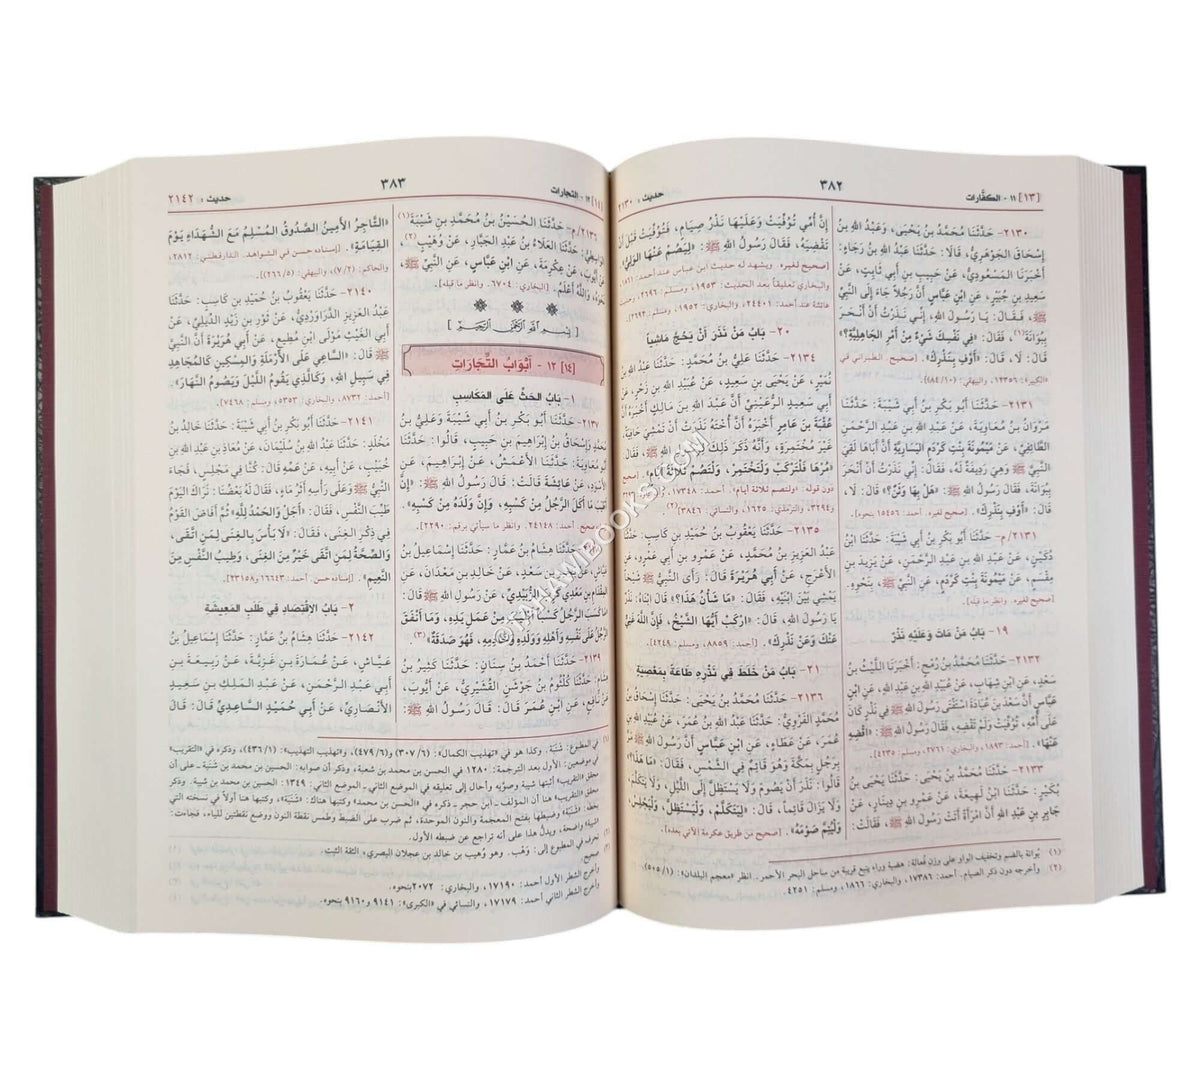 [١٣] ١١ - الكفَّارات
٣٨٢
حديث : ٢١٣٠
٢١٣٠- حَدَّثَنَا مُحَمَّدُ بْنُ يَحْيَى، وَعَبْدُ اللهِ بْنُ
إِسْحَاقَ الجَوْهَرِيُّ، قَالَا: حَدَّثَنَا عَبْدُ اللهِ بْنُ رَجَاءٍ:
أَخْبَرَنَا المَسْعُودِيُّ، عَنْ حَبِيبِ بْنِ أَبِي ثَابِتٍ، عَنْ
سَعِيدِ بْنِ جُبَيْرٍ، عَنِ ابْنِ عَبَّاسٍ أَنَّ رَجُلًا جَاءَ إِلَى النَّبِيِّ
ﷺ، فَقَالَ: يَا رَسُولَ اللهِ، إِنِّي نَذَرْتُ أَنْ أَنْحَرَ
بِبُوَانَةَ(١)، فَقَالَ: «فِي نَفْسِكَ شَيْءٌ مِنْ أَمْرِ الجَاهِلِيَّةِ؟»
قَالَ: لَا، قَالَ: «أَوْفِ بِنَذْرِكَ». [صحيح. الطبراني في
«الكبير»: ١٢٣٥٦، والبيهقي: (١٠/ ٨٤)].
٢١٣١- حَدَّثَنَا أَبُو بَكْرِ بْنُ أَبِي شَيْبَةَ: حَدَّثَنَا
مَرْوَانُ بْنُ مُعَاوِيَةَ، عَنْ عَبْدِ اللهِ بْنِ عَبْدِ الرَّحْمَنِ
الطَّائِفِيِّ، عَنْ مَيْمُونَةَ بِنْتِ كَرْدَمٍ اليَسَارِيَّةِ أَنَّ أَبَاهَا لَقِيَ
النَّبِيَّ ﷺ وَهِيَ رَدِيفَةٌ لَهُ، فَقَالَ: إِنِّي نَذَرْتُ أَنْ أَنْحَرَ
بِبُوَانَةَ، فَقَالَ رَسُولُ اللهِ ﷺ: «هَلْ بِهَا وَثَنٌ؟» قَالَ: لَا،
قَالَ: «أَوْفِ بِنَذْرِكَ». [صحيح لغيره. أحمد: ١٥٤٥٦ بنحوه].
٢١٣١/م- حَدَّثَنَا أَبُو بَكْرِ بْنُ أَبِي شَيْبَةَ: حَدَّثَنَا ابْنُ
دُكَيْنٍ، عَنْ عَبْدِ اللهِ بْنِ عَبْدِ الرَّحْمَنِ، عَنْ يَزِيدَ بْنِ
مِقْسَمٍ، عَنْ مَيْمُونَةَ بِنْتِ كَرْدَمٍ، عَنِ النَّبِيِّ ﷺ، بِنَحْوِهِ.
[صحيح لغيره. وانظر ما قبله].
١٩- بَابُ مَنْ مَاتَ وَعَلَيْهِ نَذْرٌ
٢١٣٢- حَدَّثَنَا مُحَمَّدُ بْنُ رُمْحٍ: أَخْبَرَنَا اللَّيْثُ بْنُ
سَعْدٍ، عَنِ ابْنِ شِهَابٍ، عَنْ عُبَيْدِ اللهِ بْنِ عَبْدِ اللهِ، عَنِ ابْنِ
عَبَّاسٍ أَنَّ سَعْدَ بْنَ عُبَادَةَ اسْتَفْتَى رَسُولَ اللهِ ﷺ فِي نَذْرٍ كَانَ
عَلَى أُمِّهِ، تُوُفِّيَتْ وَلَمْ تَقْضِهِ، فَقَالَ رَسُولُ اللهِ ﷺ: «اقْضِهِ
عَنْهَا». [أحمد: ١٨٩٣، والبخاري: ٢٧٦١، ومسلم: ٤٢٣٥].
٢١٣٣- حَدَّثَنَا مُحَمَّدُ بْنُ يَحْيَى: حَدَّثَنَا يَحْيَى بْنُ
بُكَيْرٍ: حَدَّثَنَا ابْنُ لَهِيعَةَ، عَنْ عَمْرِو بْنِ دِينَارٍ، عَنْ
جَابِرِ بْنِ عَبْدِ اللهِ أَنَّ امْرَأَةً أَتَتْ رَسُولَ اللهِ ﷺ، فَقَالَتْ:
إِنَّ أُمِّي تُوُفِّيَتْ وَعَلَيْهَا نَذْرُ صِيَامٍ، فَتُوُفِّيَتْ قَبْلَ أَنْ
تَقْضِيَهُ، فَقَالَ رَسُولُ اللهِ ﷺ: «لِيَصُمْ عَنْهَا الوَلِيُّ».
[صحيح لغيره. ويشهد له حديث ابن عباس عند أحمد: ١٨٦١،
والبخاري تعليقاً بعد الحديث: ١٩٥٣، ومسلم: ٢٦٩٦، وحديث
عائشة عند أحمد: ٢٤٤٠١، والبخاري: ١٩٥٢، ومسلم: ٢٦٩٢].
٢٠- بَابُ مَنْ نَذَرَ أَنْ يَحُجَّ مَاشِياً
٢١٣٤- حَدَّثَنَا عَلِيُّ بْنُ مُحَمَّدٍ: حَدَّثَنَا عَبْدُ اللهِ بْنُ
نُمَيْرٍ، عَنْ يَحْيَى بْنِ سَعِيدٍ، عَنْ عُبَيْدِ اللهِ بْنِ زَحْرٍ، عَنْ
أَبِي سَعِيدٍ الرُّعَيْنِيِّ أَنَّ عَبْدَ اللهِ بْنَ مَالِكٍ أَخْبَرَهُ أَنَّ
عُقْبَةَ بْنَ عَامِرٍ أَخْبَرَهُ أَنَّ أُخْتَهُ نَذَرَتْ أَنْ تَمْشِيَ حَافِيَةً،
غَيْرَ مُخْتَمِرَةٍ، وَأَنَّهُ ذَكَرَ ذَلِكَ لِرَسُولِ اللهِ ﷺ، فَقَالَ:
«مُرْهَا فَلْتَرْكَبْ وَلْتَخْتَمِرْ، وَلْتَصُمْ ثَلَاثَةَ أَيَّامٍ». [صحيح
دون قوله: «ولتصم ثلاثة أيام». أحمد: ١٧٣٤٨، وأبو داود:
٣٢٩٤، والترمذي: ١٦٢٥، والنسائي: ٣٨٤٦](٢).
٢١٣٥- حَدَّثَنَا يَعْقُوبُ بْنُ حُمَيْدِ بْنِ كَاسِبٍ: حَدَّثَنَا
عَبْدُ العَزِيزِ بْنُ مُحَمَّدٍ، عَنْ عَمْرِو بْنِ أَبِي عَمْرٍو، عَنِ
الأَعْرَجِ، عَنْ أَبِي هُرَيْرَةَ قَالَ: رَأَى النَّبِيُّ ﷺ شَيْخاً
يَمْشِي بَيْنَ ابْنَيْهِ، فَقَالَ: «مَا شَأْنُ هَذَا؟» قَالَ ابْنَاهُ: نَذْرٌ
يَا رَسُولَ اللهِ، قَالَ: «ارْكَبْ أَيُّهَا الشَّيْخُ، فَإِنَّ اللهَ غَنِيٌّ
عَنْكَ وَعَنْ نَذْرِكَ». [أحمد: ٨٨٥٩، ومسلم: ٤٢٤٩].
٢١- بَابُ مَنْ خَلَطَ فِي نَذْرِهِ طَاعَةً بِمَعْصِيَةٍ
٢١٣٦- حَدَّثَنَا مُحَمَّدُ بْنُ يَحْيَى: حَدَّثَنَا إِسْحَاقُ بْنُ
مُحَمَّدٍ الفَرْوِيُّ: حَدَّثَنَا عَبْدُ اللهِ بْنُ عُمَرَ، عَنْ عُبَيْدِ اللهِ بْنِ
عُمَرَ، عَنْ عَطَاءٍ، عَنِ ابْنِ عَبَّاسٍ أَنَّ رَسُولَ اللهِ ﷺ مَرَّ
بِرَجُلٍ بِمَكَّةَ وَهُوَ قَائِمٌ فِي الشَّمْسِ، فَقَالَ: «مَا هَذَا؟»
قَالُوا: نَذَرَ أَنْ يَصُومَ وَلَا يَسْتَظِلَّ إِلَى اللَّيْلِ، وَلَا يَتَكَلَّمَ،
وَلَا يَزَالَ قَائِماً، قَالَ: «لِيَتَكَلَّمْ، وَلْيَسْتَظِلَّ، وَلْيَجْلِسْ،
وَلْيُتِمَّ صَوْمَهُ». [صحيح من طريق عكرمة الآتي بعده].
(١) بُوانة بالضم وتخفيف الواو على وزن فُعالة: هضبة وراء ينبع قريبة من ساحل البحر الأحمر. انظر «معجم البلدان»: (١/ ٥٠٥).
(٢) وأخرجه دون ذكر الصيام: أحمد: ١٧٣٨٦، والبخاري: ١٨٦٦، ومسلم: ٤٢٥١.
[١٤] ١٢ - التجارات
٣٨٣
حديث : ٢١٤٢
٢١٣٦/م- حَدَّثَنَا الحُسَيْنُ بْنُ مُحَمَّدِ بْنِ شَيْبَةَ(١)
الوَاسِطِيُّ: حَدَّثَنَا العَلَاءُ بْنُ عَبْدِ الجَبَّارِ، عَنْ وُهَيْبٍ(٢)،
عَنْ أَيُّوبَ، عَنْ عِكْرِمَةَ، عَنِ ابْنِ عَبَّاسٍ، عَنِ النَّبِيِّ ﷺ،
نَحْوَهُ، وَاللهُ أَعْلَمُ. [البخاري: ٦٧٠٤. وانظر ما قبله].
[بِسْمِ اللهِ الرَّحْمَنِ الرَّحِيمِ]
[١٤] ١٢ - أَبْوَابُ التِّجَارَاتِ
١- بَابُ الحَثِّ عَلَى المَكَاسِبِ
٢١٣٧- حَدَّثَنَا أَبُو بَكْرِ بْنُ أَبِي شَيْبَةَ وَعَلِيُّ بْنُ
مُحَمَّدٍ وَإِسْحَاقُ بْنُ إِبْرَاهِيمَ بْنِ حَبِيبٍ، قَالُوا: حَدَّثَنَا
أَبُو مُعَاوِيَةَ: حَدَّثَنَا الأَعْمَشُ، عَنْ إِبْرَاهِيمَ، عَنِ
الأَسْوَدِ، عَنْ عَائِشَةَ قَالَتْ: قَالَ رَسُولُ اللهِ ﷺ: «إِنَّ
أَطْيَبَ مَا أَكَلَ الرَّجُلُ مِنْ كَسْبِهِ، وَإِنَّ وَلَدَهُ مِنْ كَسْبِهِ».
[صحيح. أحمد: ٢٤١٤٨. وانظر ما سيأتي برقم: ٢٢٩٠].
٢١٣٨- حَدَّثَنَا هِشَامُ بْنُ عَمَّارٍ: حَدَّثَنَا إِسْمَاعِيلُ بْنُ
عَيَّاشٍ، عَنْ بَحِيرِ بْنِ سَعْدٍ، عَنْ خَالِدِ بْنِ مَعْدَانَ، عَنِ
المِقْدَامِ بْنِ مَعْدِي كَرِبَ الزُّبَيْدِيِّ، عَنْ رَسُولِ اللهِ ﷺ قَالَ:
«مَا كَسَبَ الرَّجُلُ كَسْباً أَطْيَبَ مِنْ عَمَلِ يَدِهِ، وَمَا أَنْفَقَ
الرَّجُلُ عَلَى نَفْسِهِ وَأَهْلِهِ وَوَلَدِهِ وَخَادِمِهِ، فَهُوَ صَدَقَةٌ»(٣).
٢١٣٩- حَدَّثَنَا أَحْمَدُ بْنُ سِنَانٍ: حَدَّثَنَا كَثِيرُ بْنُ
هِشَامٍ: حَدَّثَنَا كُلْثُومُ بْنُ جَوْشَنٍ القُشَيْرِيُّ، عَنْ أَيُّوبَ،
عَنْ نَافِعٍ، عَنِ ابْنِ عُمَرَ قَالَ: قَالَ رَسُولُ اللهِ ﷺ:
«التَّاجِرُ الأَمِينُ الصَّدُوقُ المُسْلِمُ مَعَ الشُّهَدَاءِ يَوْمَ
القِيَامَةِ». [إسناده حسن في الشواهد. الدارقطني: ٢٨١٢،
والحاكم: (٢/ ٧)، والبيهقي: (٥/ ٢٦٦)].
٢١٤٠- حَدَّثَنَا يَعْقُوبُ بْنُ حُمَيْدِ بْنِ كَاسِبٍ: حَدَّثَنَا
عَبْدُ العَزِيزِ الدَّرَاوَرْدِيُّ، عَنْ ثَوْرِ بْنِ زَيْدٍ الدِّيلِيِّ، عَنْ
أَبِي الغَيْثِ مَوْلَى ابْنِ مُطِيعٍ، عَنْ أَبِي هُرَيْرَةَ أَنَّ النَّبِيَّ
ﷺ قَالَ: «السَّاعِي عَلَى الأَرْمَلَةِ وَالمِسْكِينِ كَالمُجَاهِدِ
فِي سَبِيلِ اللهِ، وَكَالَّذِي يَقُومُ اللَّيْلَ وَيَصُومُ النَّهَارَ».
[أحمد: ٨٧٣٢، والبخاري: ٥٣٥٣، ومسلم: ٧٤٦٨].
٢١٤١- حَدَّثَنَا أَبُو بَكْرِ بْنُ أَبِي شَيْبَةَ: حَدَّثَنَا خَالِدُ بْنُ
مَخْلَدٍ: حَدَّثَنَا عَبْدُ اللهِ بْنُ سُلَيْمَانَ، عَنْ مُعَاذِ بْنِ عَبْدِ اللهِ بْنِ
خُبَيْبٍ، عَنْ أَبِيهِ، عَنْ عَمِّهِ قَالَ: كُنَّا فِي مَجْلِسٍ، فَجَاءَ
النَّبِيُّ ﷺ وَعَلَى رَأْسِهِ أَثَرُ مَاءٍ، فَقَالَ لَهُ بَعْضُنَا: نَرَاكَ اليَوْمَ
طَيِّبَ النَّفْسِ، فَقَالَ: «أَجَلْ وَالحَمْدُ لِلَّهِ» ثُمَّ أَفَاضَ القَوْمُ
فِي ذِكْرِ الغِنَى، فَقَالَ: «لَا بَأْسَ بِالغِنَى لِمَنِ اتَّقَى،
وَالصِّحَّةُ لِمَنِ اتَّقَى خَيْرٌ مِنَ الغِنَى، وَطِيبُ النَّفْسِ مِنَ
النَّعِيمِ». [إسناده حسن. أحمد: ١٦٦٤٣ و٢٣١٥٨].
٢- بَابُ الاقْتِصَادِ فِي طَلَبِ المَعِيشَةِ
٢١٤٢- حَدَّثَنَا هِشَامُ بْنُ عَمَّارٍ: حَدَّثَنَا إِسْمَاعِيلُ بْنُ
عَيَّاشٍ، عَنْ عُمَارَةَ بْنِ غَزِيَّةَ، عَنْ رَبِيعَةَ بْنِ
أَبِي عَبْدِ الرَّحْمَنِ، عَنْ عَبْدِ المَلِكِ بْنِ سَعِيدٍ
الأَنْصَارِيِّ، عَنْ أَبِي حُمَيْدٍ السَّاعِدِيِّ قَالَ: قَالَ
(١) في المطبوع: شَنَبَة. وكذا هو في «تهذيب الكمال»: (٦/ ٤٧٩)، و«تهذيب التهذيب»: (١/ ٤٣٦)، وذكره في «التقريب»
في موضعين: الأول بعد الترجمة: ١٢٨٠ في الحسن بن محمد بن شعبة، وذكر أن صوابه: الحسين بن محمد بن شَنَبَة، - على أن
محقق «التقريب» أثبتها شيبة وصوَّبه وأحال إلى تعليقه في الموضع الثاني - الموضع الثاني: ١٣٤٩: الحسين بن محمد بن شيبة. وذكر
محقق «التقريب» هنا أن المؤلف - أي ابن حجر - ذكره في «الحسن بن محمد» وكتبها هناك: «شَنَبَة»، وكتبها هنا أولاً في نسخته التي
بخطه: «شَنَبَة» وضبطها بفتح المعجمة والنون الموحدة، ثم ضرب على الضبط وطمس نقطة النون ووضع نقطتين للياء، فجاءت:
«شيبة» واضحة، ويدلُّ هذا على أنه تراجع عن ضبطه الأول.
(٢) تحرف في المطبوع إلى: وَهْب. وهو وُهيب بن خالد بن عجلان البصري، الثقة الثبت.
(٣) صحيح.
وأخرج الشطر الأول أحمد: ١٧١٩٠، والبخاري: ٢٠٧٢ بنحوه.
وأخرج الشطر الثاني أحمد: ١٧١٧٩، والنسائي في «الكبرى»: ٩١٤١ و٩١٦٠ بنحوه.